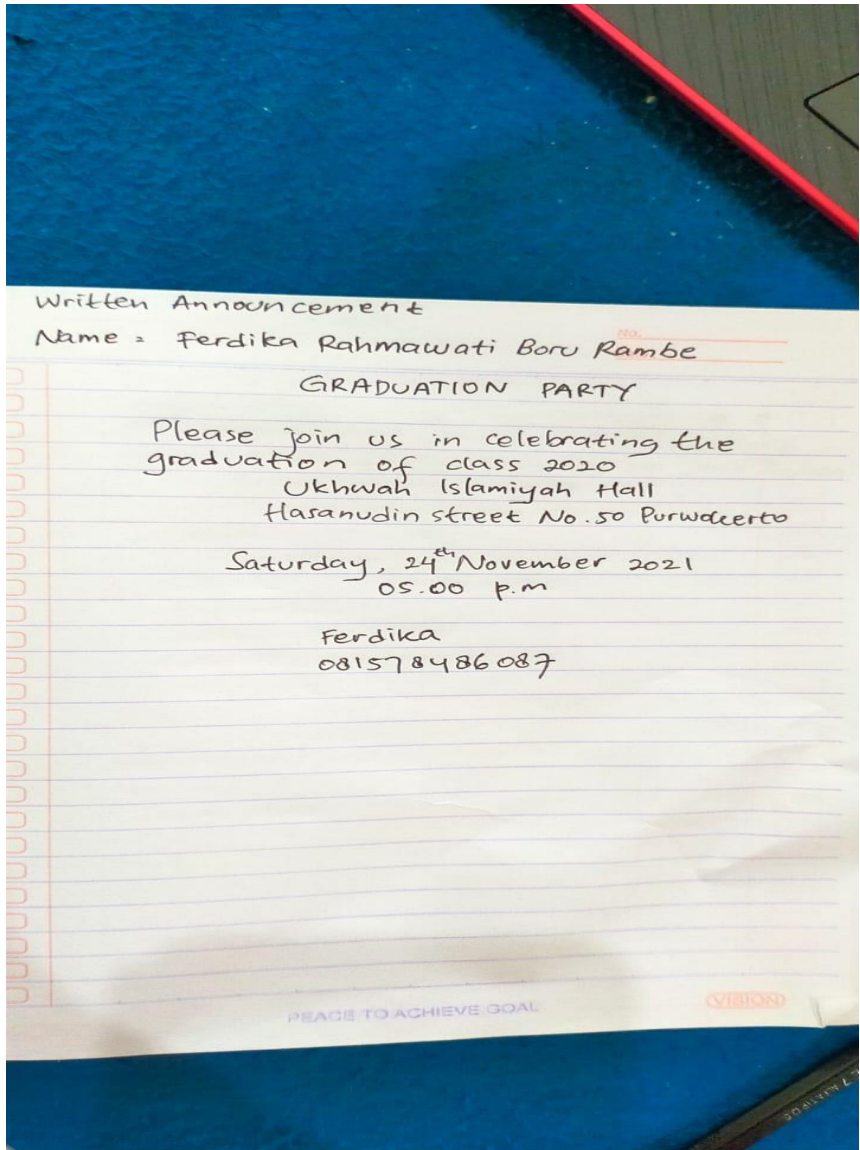 Written Announcement
No.
Name : Ferdika Rahmawati Boru Rambe
GRADUATION PARTY
Please join us in celebrating the
graduation of class 2020
Ukhwah Islamiyah Hall
Hasanudin street No.50 Purwokerto
Saturday, 24th November 2021
05.00 p.m
Ferdika
081578486087
PEACE TO ACHIEVE GOAL
VISION